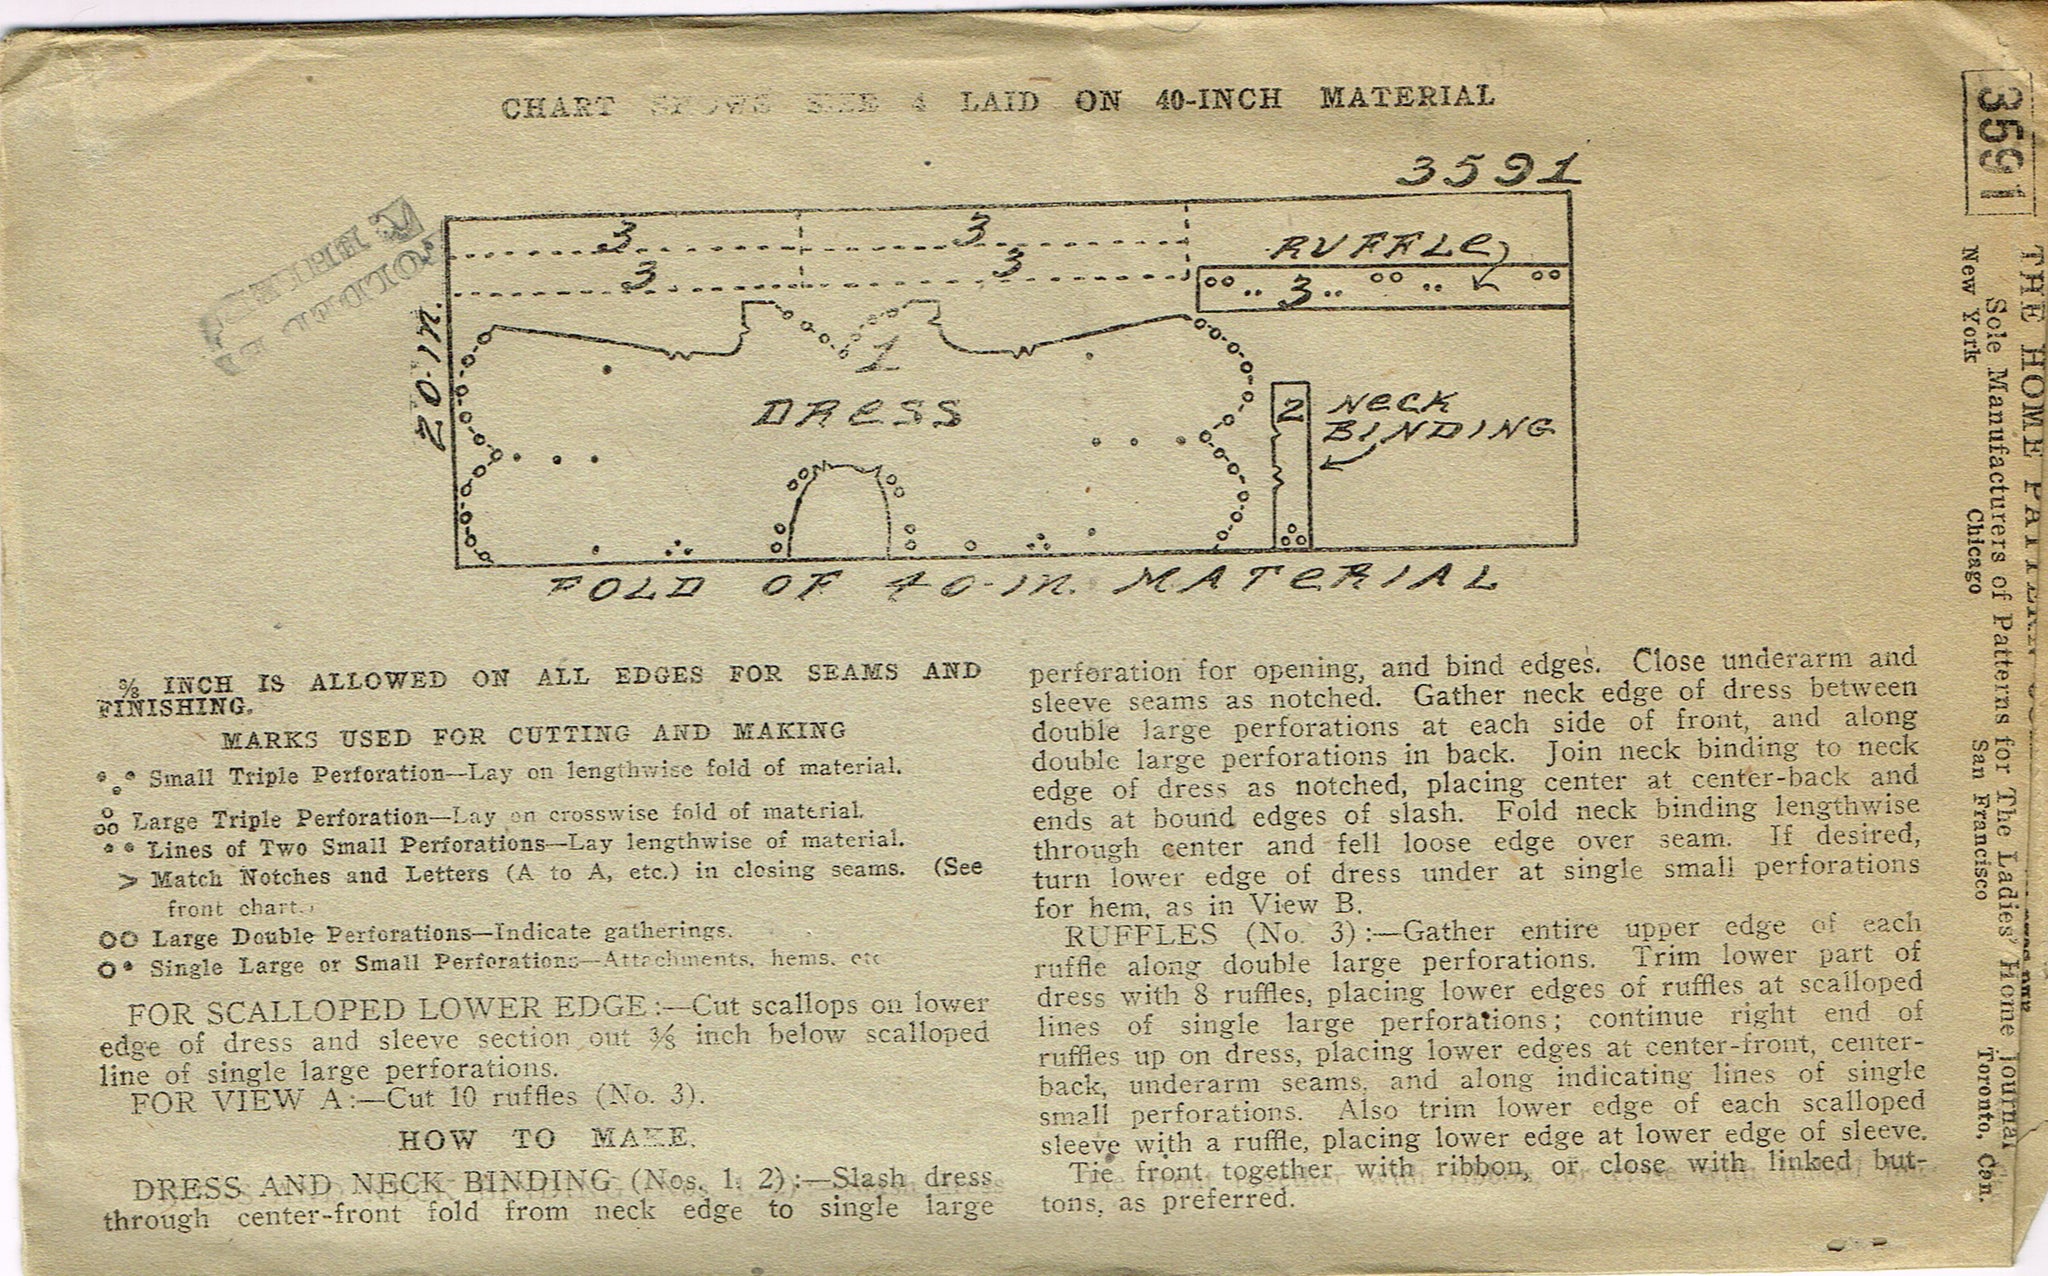 CHART SHOWS SIZE 4 LAID ON 40-INCH MATERIAL
3591
3
3
3
3
RUFFLE
3
20-IN
1
DRESS
2
NECK
BINDING
FOLD OF 40-IN. MATERIAL
⅜ INCH IS ALLOWED ON ALL EDGES FOR SEAMS AND
FINISHING.
MARKS USED FOR CUTTING AND MAKING
Small Triple Perforation—Lay on lengthwise fold of material.
Large Triple Perforation—Lay on crosswise fold of material.
Lines of Two Small Perforations—Lay lengthwise of material.
> Match Notches and Letters (A to A, etc.) in closing seams. (See
front chart.)
Large Double Perforations—Indicate gatherings.
Single Large or Small Perforations—Attachments, hems, etc
FOR SCALLOPED LOWER EDGE:—Cut scallops on lower
edge of dress and sleeve section out ⅜ inch below scalloped
line of single large perforations.
FOR VIEW A:—Cut 10 ruffles (No. 3).
HOW TO MAKE.
DRESS AND NECK BINDING (Nos. 1, 2):—Slash dress
through center-front fold from neck edge to single large
perforation for opening, and bind edges. Close underarm and
sleeve seams as notched. Gather neck edge of dress between
double large perforations at each side of front, and along
double large perforations in back. Join neck binding to neck
edge of dress as notched, placing center at center-back and
ends at bound edges of slash. Fold neck binding lengthwise
through center and fell loose edge over seam. If desired,
turn lower edge of dress under at single small perforations
for hem, as in View B.
RUFFLES (No. 3):—Gather entire upper edge of each
ruffle along double large perforations. Trim lower part of
dress with 8 ruffles, placing lower edges of ruffles at scalloped
lines of single large perforations; continue right end of
ruffles up on dress, placing lower edges at center-front, center-
back, underarm seams, and along indicating lines of single
small perforations. Also trim lower edge of each scalloped
sleeve with a ruffle, placing lower edge at lower edge of sleeve.
Tie front together with ribbon, or close with linked but-
tons, as preferred.
3591
THE HOME PATTERN
Sole Manufacturers of Patterns for The Ladies' Home Journal
New York Chicago San Francisco Toronto, Can.